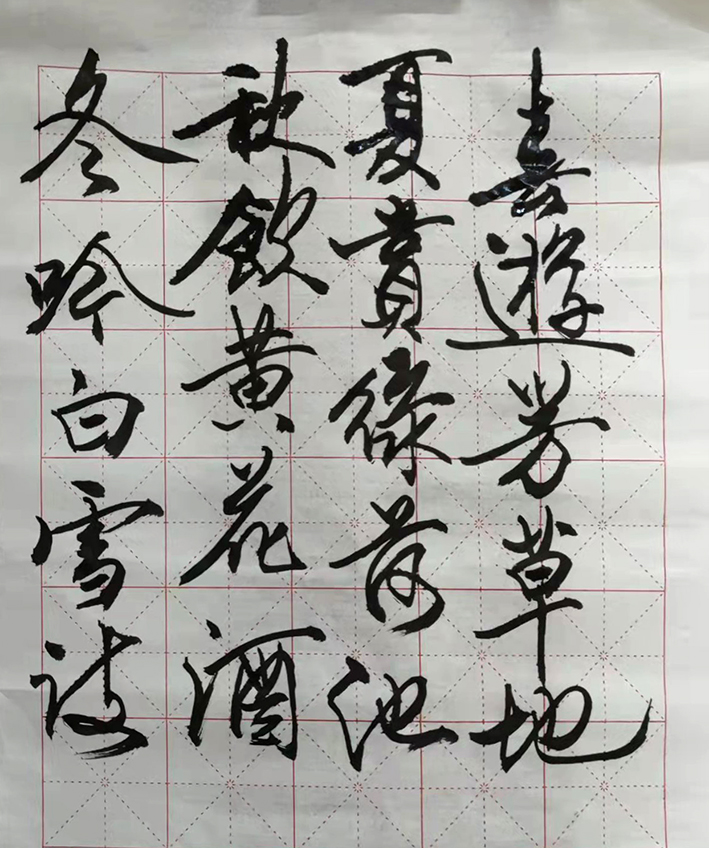 喜遊芳草地
夏賞綠荷池
秋飲黄花酒
冬吟白雪詩